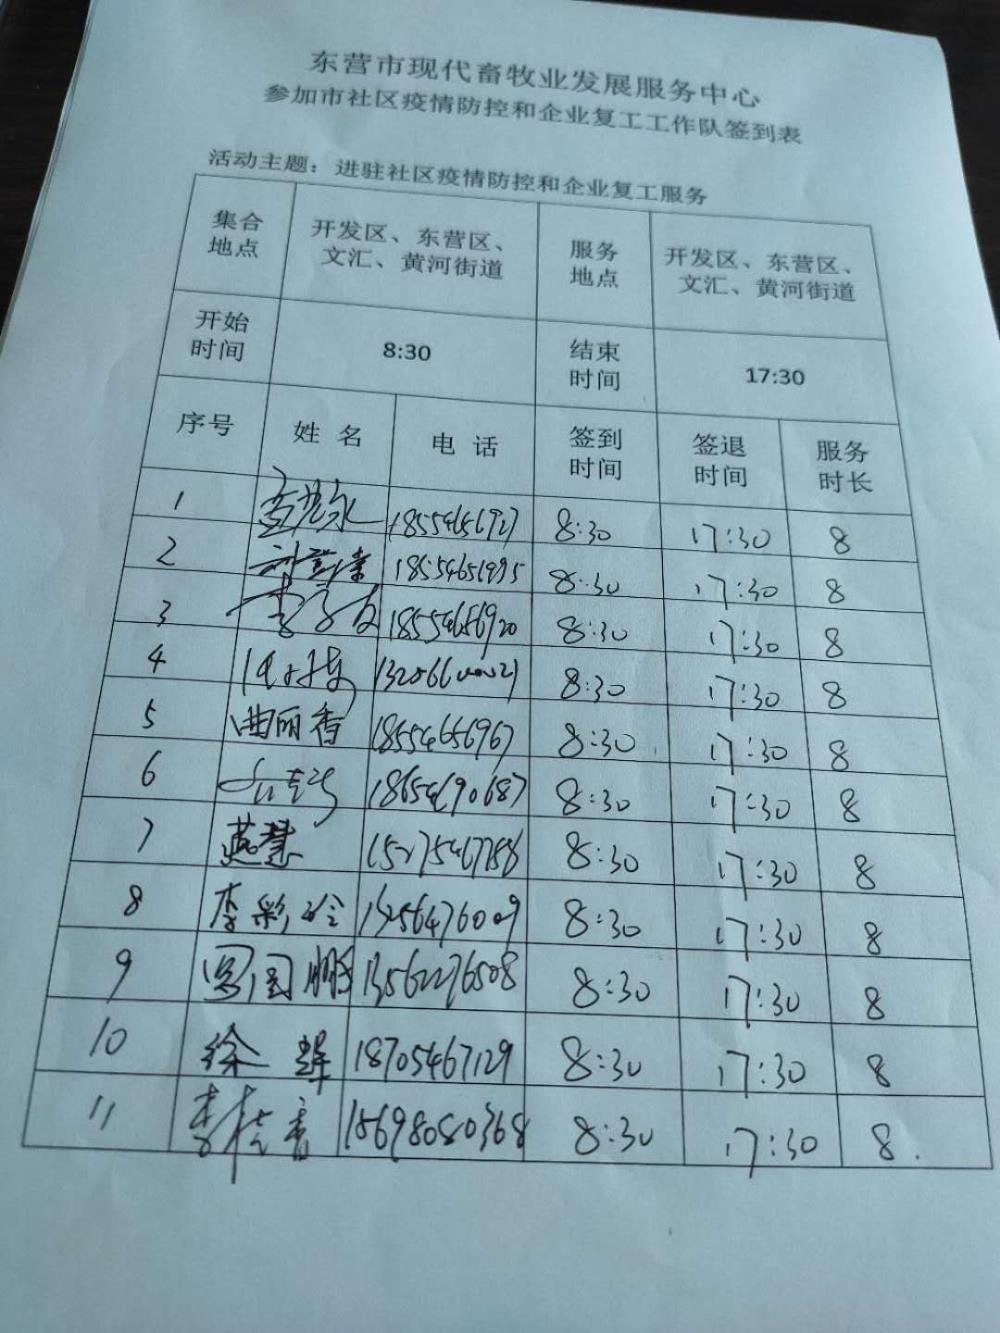 东营市现代畜牧业发展服务中心
参加市社区疫情防控和企业复工工作队签到表
活动主题：进驻社区疫情防控和企业复工服务
集合地点 开发区、东营区、文汇、黄河街道 服务地点 开发区、东营区、文汇、黄河街道
开始时间 8:30 结束时间 17:30
序号 姓名 电话 签到时间 签退时间 服务时长
1 18554656927 8:30 17:30 8
2 8:30 17:30 8
3 18554656920 8:30 17:30 8
4 8:30 17:30 8
5 曲丽香 18554656967 8:30 17:30 8
6 18654690687 8:30 17:30 8
7 燕慧 8:30 17:30 8
8 李彩玲 15256476009 8:30 17:30 8
9 国鹏 13562276508 8:30 17:30 8
10 徐辉 18705467129 8:30 17:30 8
11 李桂香 15698080368 8:30 17:30 8.